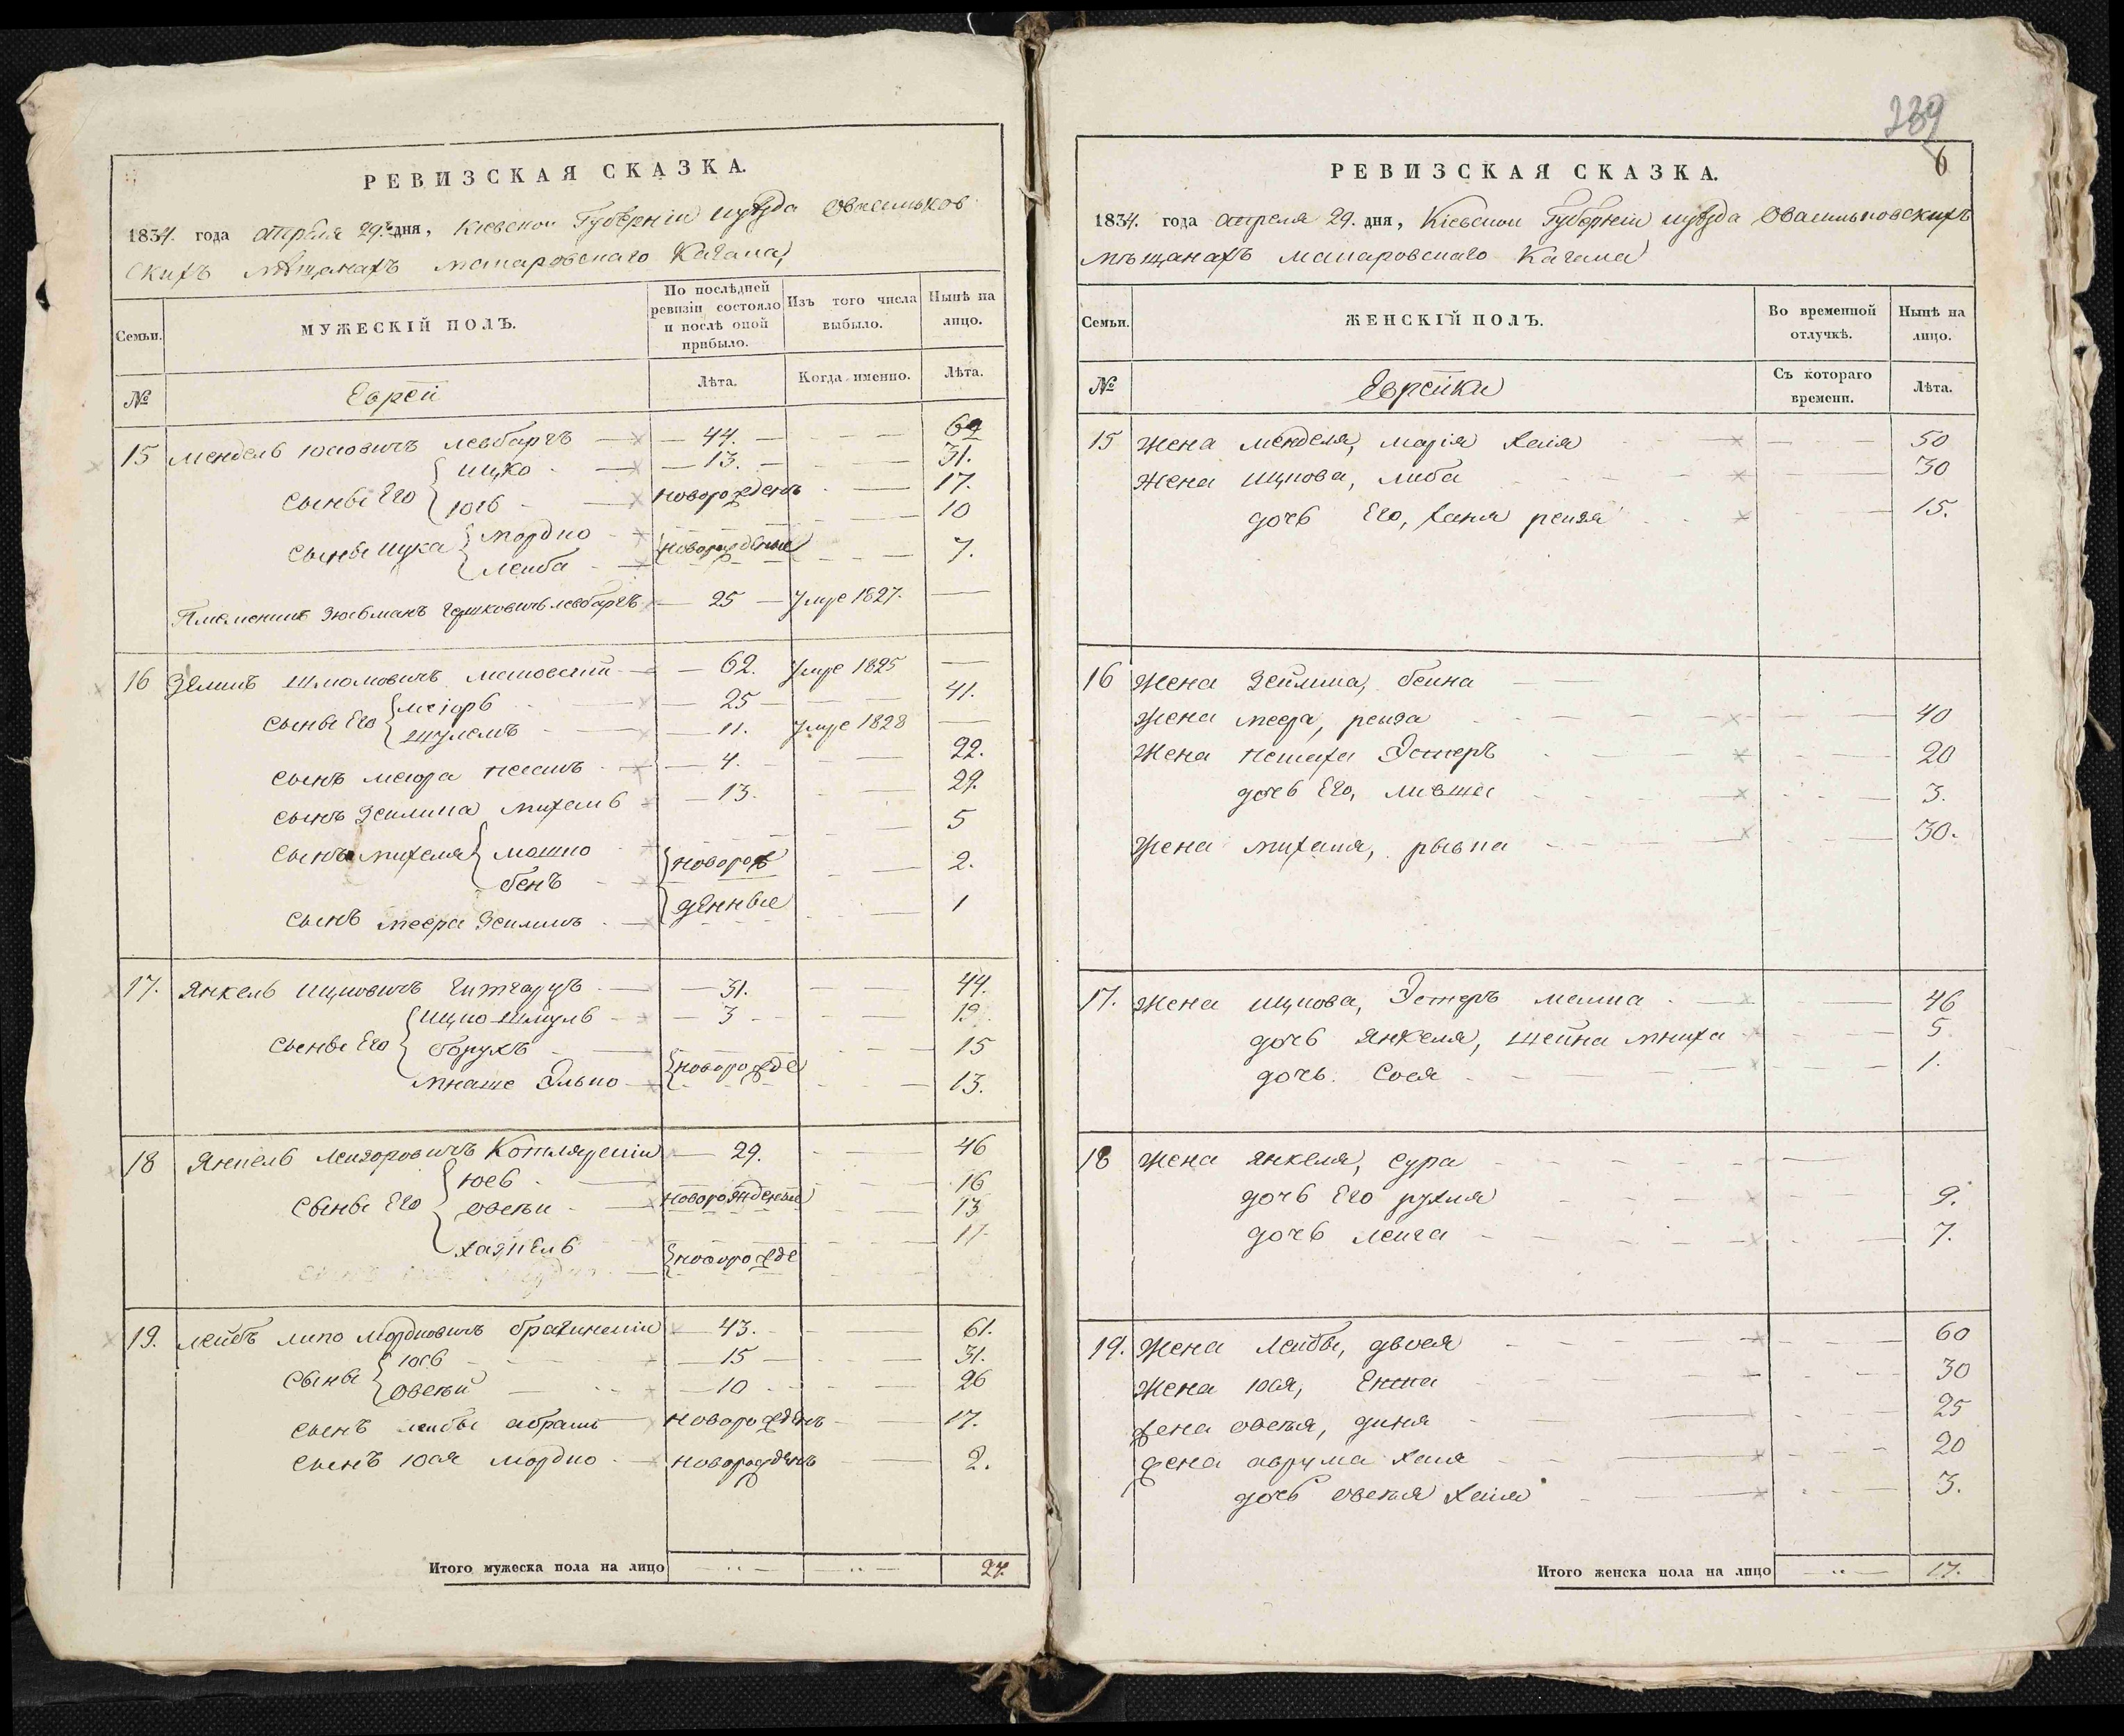 РЕВИЗСКАЯ СКАЗКА.
1834. года апреля 29. дня, Кіевской Губерніи иуѣзда Овасильков
скихъ мѣщанахъ макаровскаго Кагала
Семьи.
МУЖЕСКІЙ ПОЛЪ.
По послѣдней ревизіи состояло и послѣ оной прибыло.
Изъ того числа выбыло.
Нынѣ на лицо.
№
Еврей
Лѣта.
Когда именно.
Лѣта.
15 Мендель Юсіовичъ левбаргъ 44. 64
Сынве Его Ицко 13. 31.
Юсь новорожденъ 17.
Сынве Ицка Мордко новорожденые 10
Лейба 7.
Племеникъ Зюсьманъ Гершковичъ левбаргъ 25 Умре 1827.
16 Зѣликъ Шмоловичъ 62. Умре 1825
Сынве Его меіоръ 25 41.
Шулемъ 11. Умре 1828
Сынъ меюра песахъ 4. 22.
Сынъ Зейлика михель 13. 29.
Сынъ михеля мошко новорож 5
бенъ 2.
Сынъ меера Зейликъ денные 1
17. Янкель Ицковичъ 31. 44.
Сынве Его Ицко Шмуль 3 19.
борухъ новорожде 15
мнаше Элько 13.
18 Янкель Лейзоровичъ Котляренко 29. 46
Сынве Его Юсь новорожденые 16
Овсей 13
Хаскель новорожде 11
19. Лейбъ липо Мордковичъ брагинскій 43. 61.
Сынве Юсь 15 31.
Овсей 10 26
Сынъ лейбы абрамъ новорожденъ 17.
Сынъ Юся Мордко новорожденъ 2.
Итого мужеска пола на лицо 27.
239
6
РЕВИЗСКАЯ СКАЗКА.
1834. года апреля 29. дня, Кіевской Губерніи иуѣзда Овасильковскихъ
мѣщанахъ макаровскаго Кагала
Семьи.
ЖЕНСКІЙ ПОЛЪ.
Во временной отлучкѣ.
Нынѣ на лицо.
№
Еврейки
Съ котораго времени.
Лѣта.
15 Жена менделя, марія хая 50
Жена Ицкова, либа 30
дочь Его, ханя рейзя 15.
16 Жена Зейлика, бейна
Жена меера, рейза 40
Жена песаха Эстеръ 20
дочь Его, ливша 3.
Жена михеля, рывка 30.
17. Жена Ицкова, Эстеръ малка 46
дочь Янкеля, Шейна мниха 5
дочь Сося 1.
18 Жена янкеля, сура
дочь Его рухля 9.
дочь лейча 7.
19. Жена Лейбы, двося 60
Жена Юся, Ентка 30
жена овсея, диня 25
жена аврума хая 20
дочь овсея хая 3.
Итого женска пола на лицо 17.